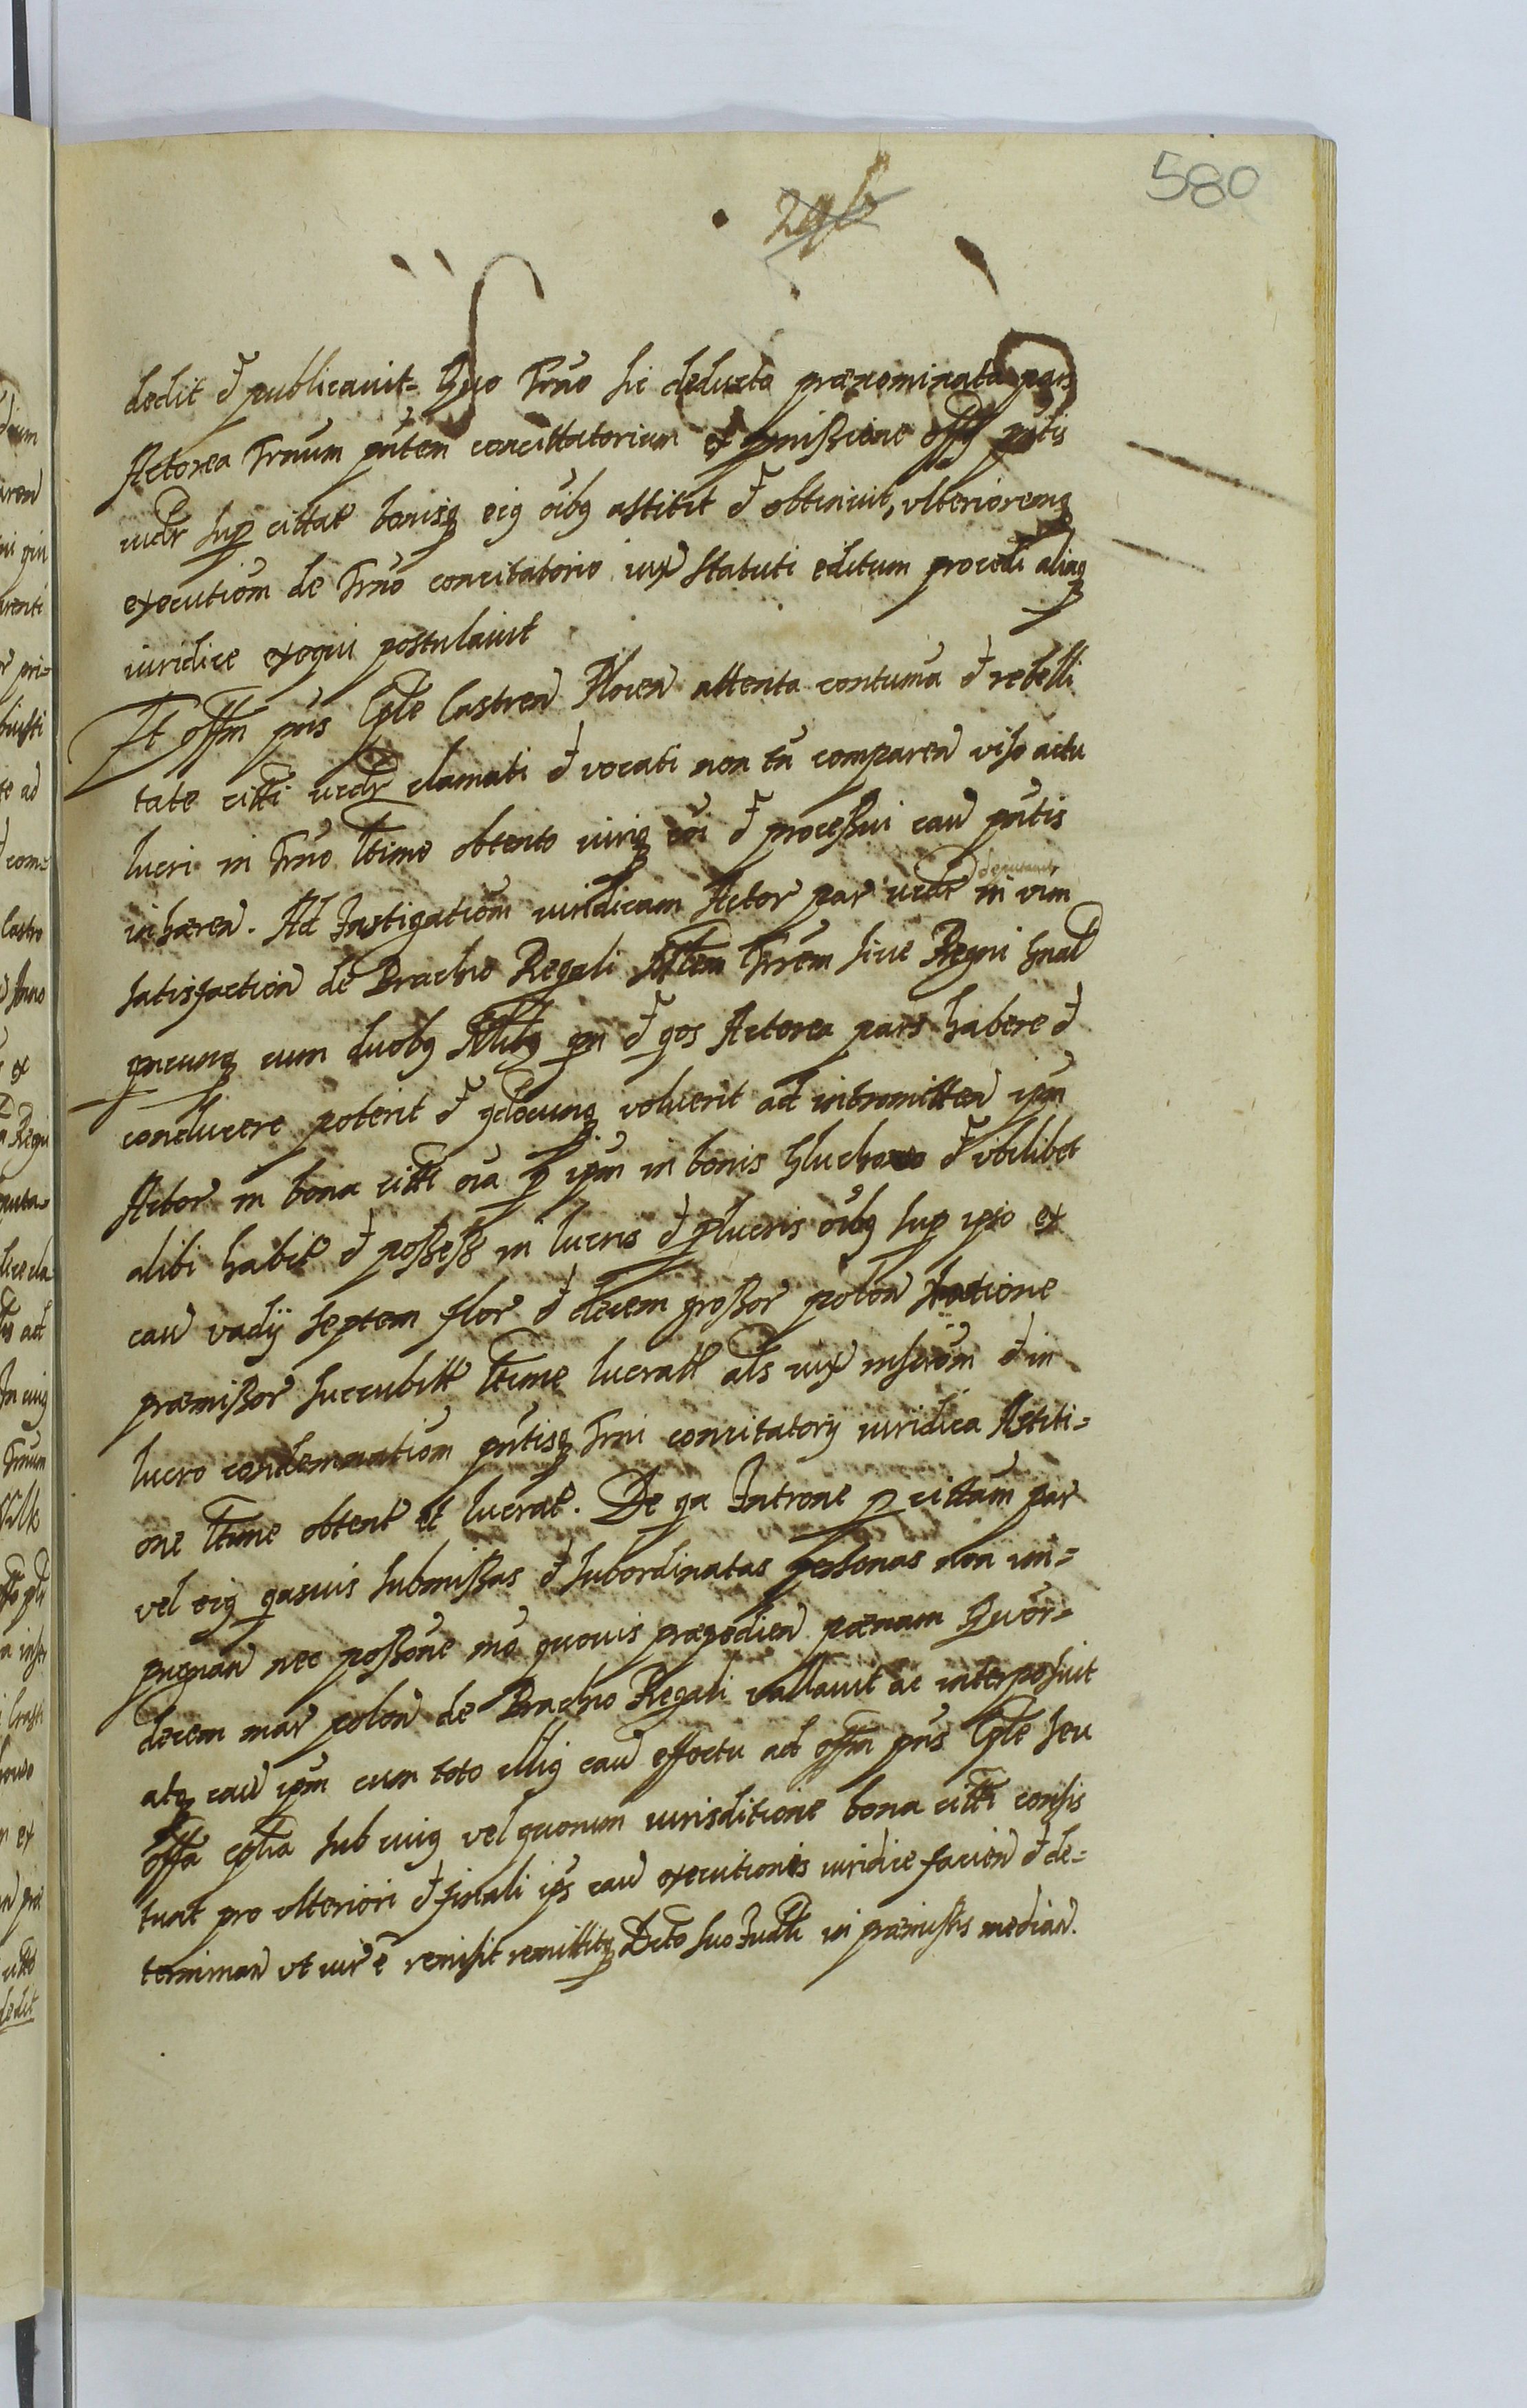 580
dedit et publicavit. Quo Trno sic deducto prænominata pars
Actorea Trnum pntem concitatorium ex pmissione offi pntis
sup cittat bonisq eiq oibq astitit et obtinuit, vlterioremq
executiom de Trno concitatorio iux statuti editum procedi aliaq
iuridice exequi postulauit
Et offm pns Cple Castren Plocen attenta contuma et rebelli
tate citti clamati et vocati non tn comparen viso actu
lucri in Trno ltime obtento iuriq coi et processui cau pntis
inhæren. Ad Instigatiom iuridicam Actor par in vim
satisfaction de Brachio Regali Trrem siue Regni gnal
quncunq cum duobq qn et qos Actorea pars habere et
conducere poterit et qdocunq voluerit ad intromitten ipm
Actor in bona citti oia p ipm in bonis Gluchowo et vbilibet
alibi habit et possess in lucris et plucris oibq sup ipso ex
cau vadij septem flor et decem grossor polon ratione
præmissor succubitt ltime lucratt als iux inscriom et in
lucro condemnatiom pntisq Trni concitatorij iuridica Astiti=
one ltime obtent et lucrat. De qa Introne p cittum par
vel eiq qasuis submissas et subordinatas personas non im=
pugnan nec possone mo quouis præpedien pœnam Quor=
decem mar polon de Brachio Regali vallauit ac interposuit
atq cau ipm cum toto illiq cau effectu ad offm pns Cple seu
offa cplia sub cuiq vel quorum iurisditione bona citti consis
tunt pro vlteriori et finali ips cau executionis iuridice facien et de=
terminan vt iur e remisit remittitq Dcto suo Iudli in præmissis median.